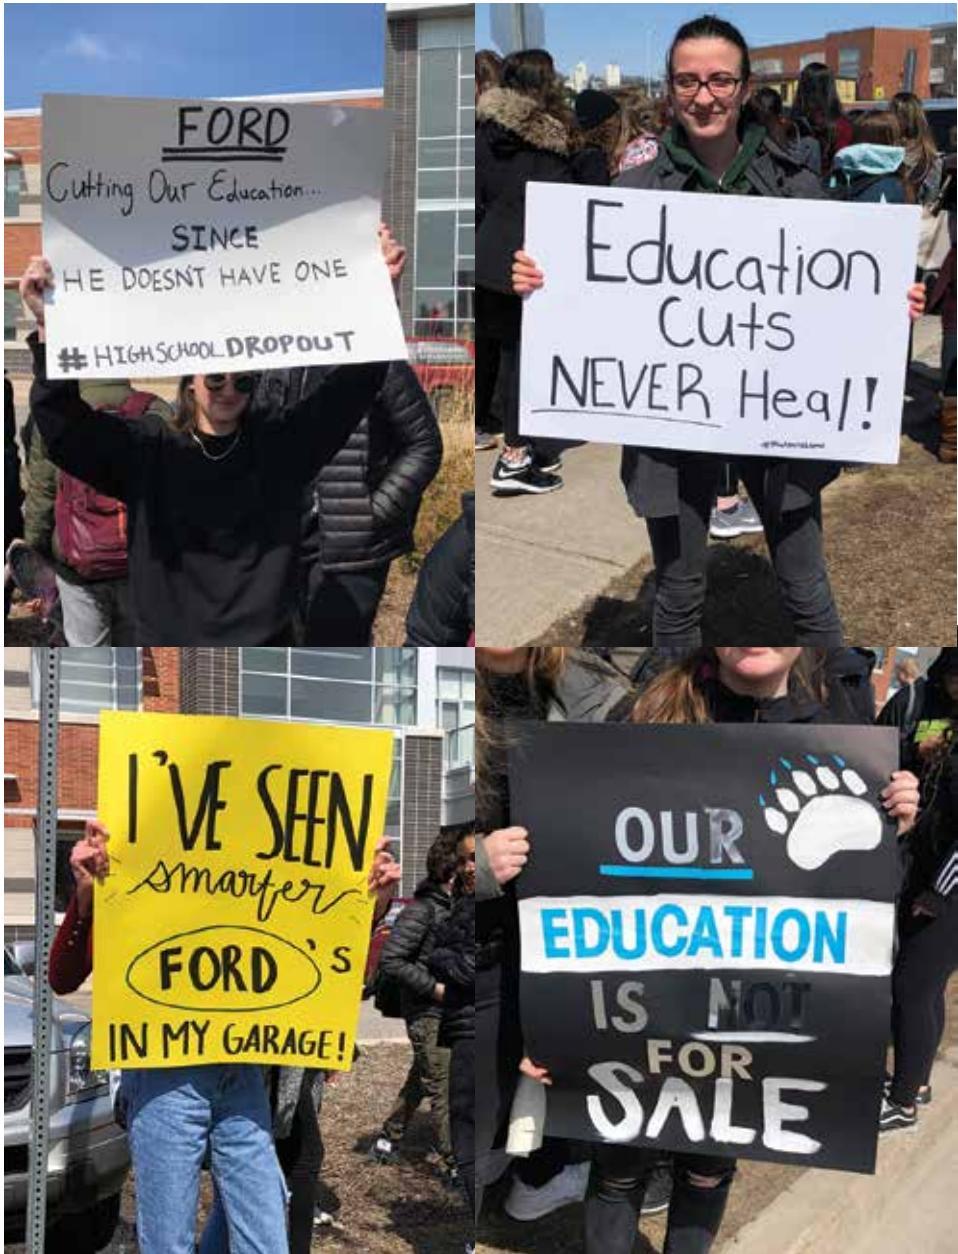 FORD
Cutting Our Education...
SINCE
HE DOESN'T HAVE ONE
#HIGHSCHOOLDROPOUT
Education
Cuts
NEVER Heal!
I'VE SEEN
smarter
FORD's
IN MY GARAGE!
OUR
EDUCATION
IS NOT
FOR
SALE